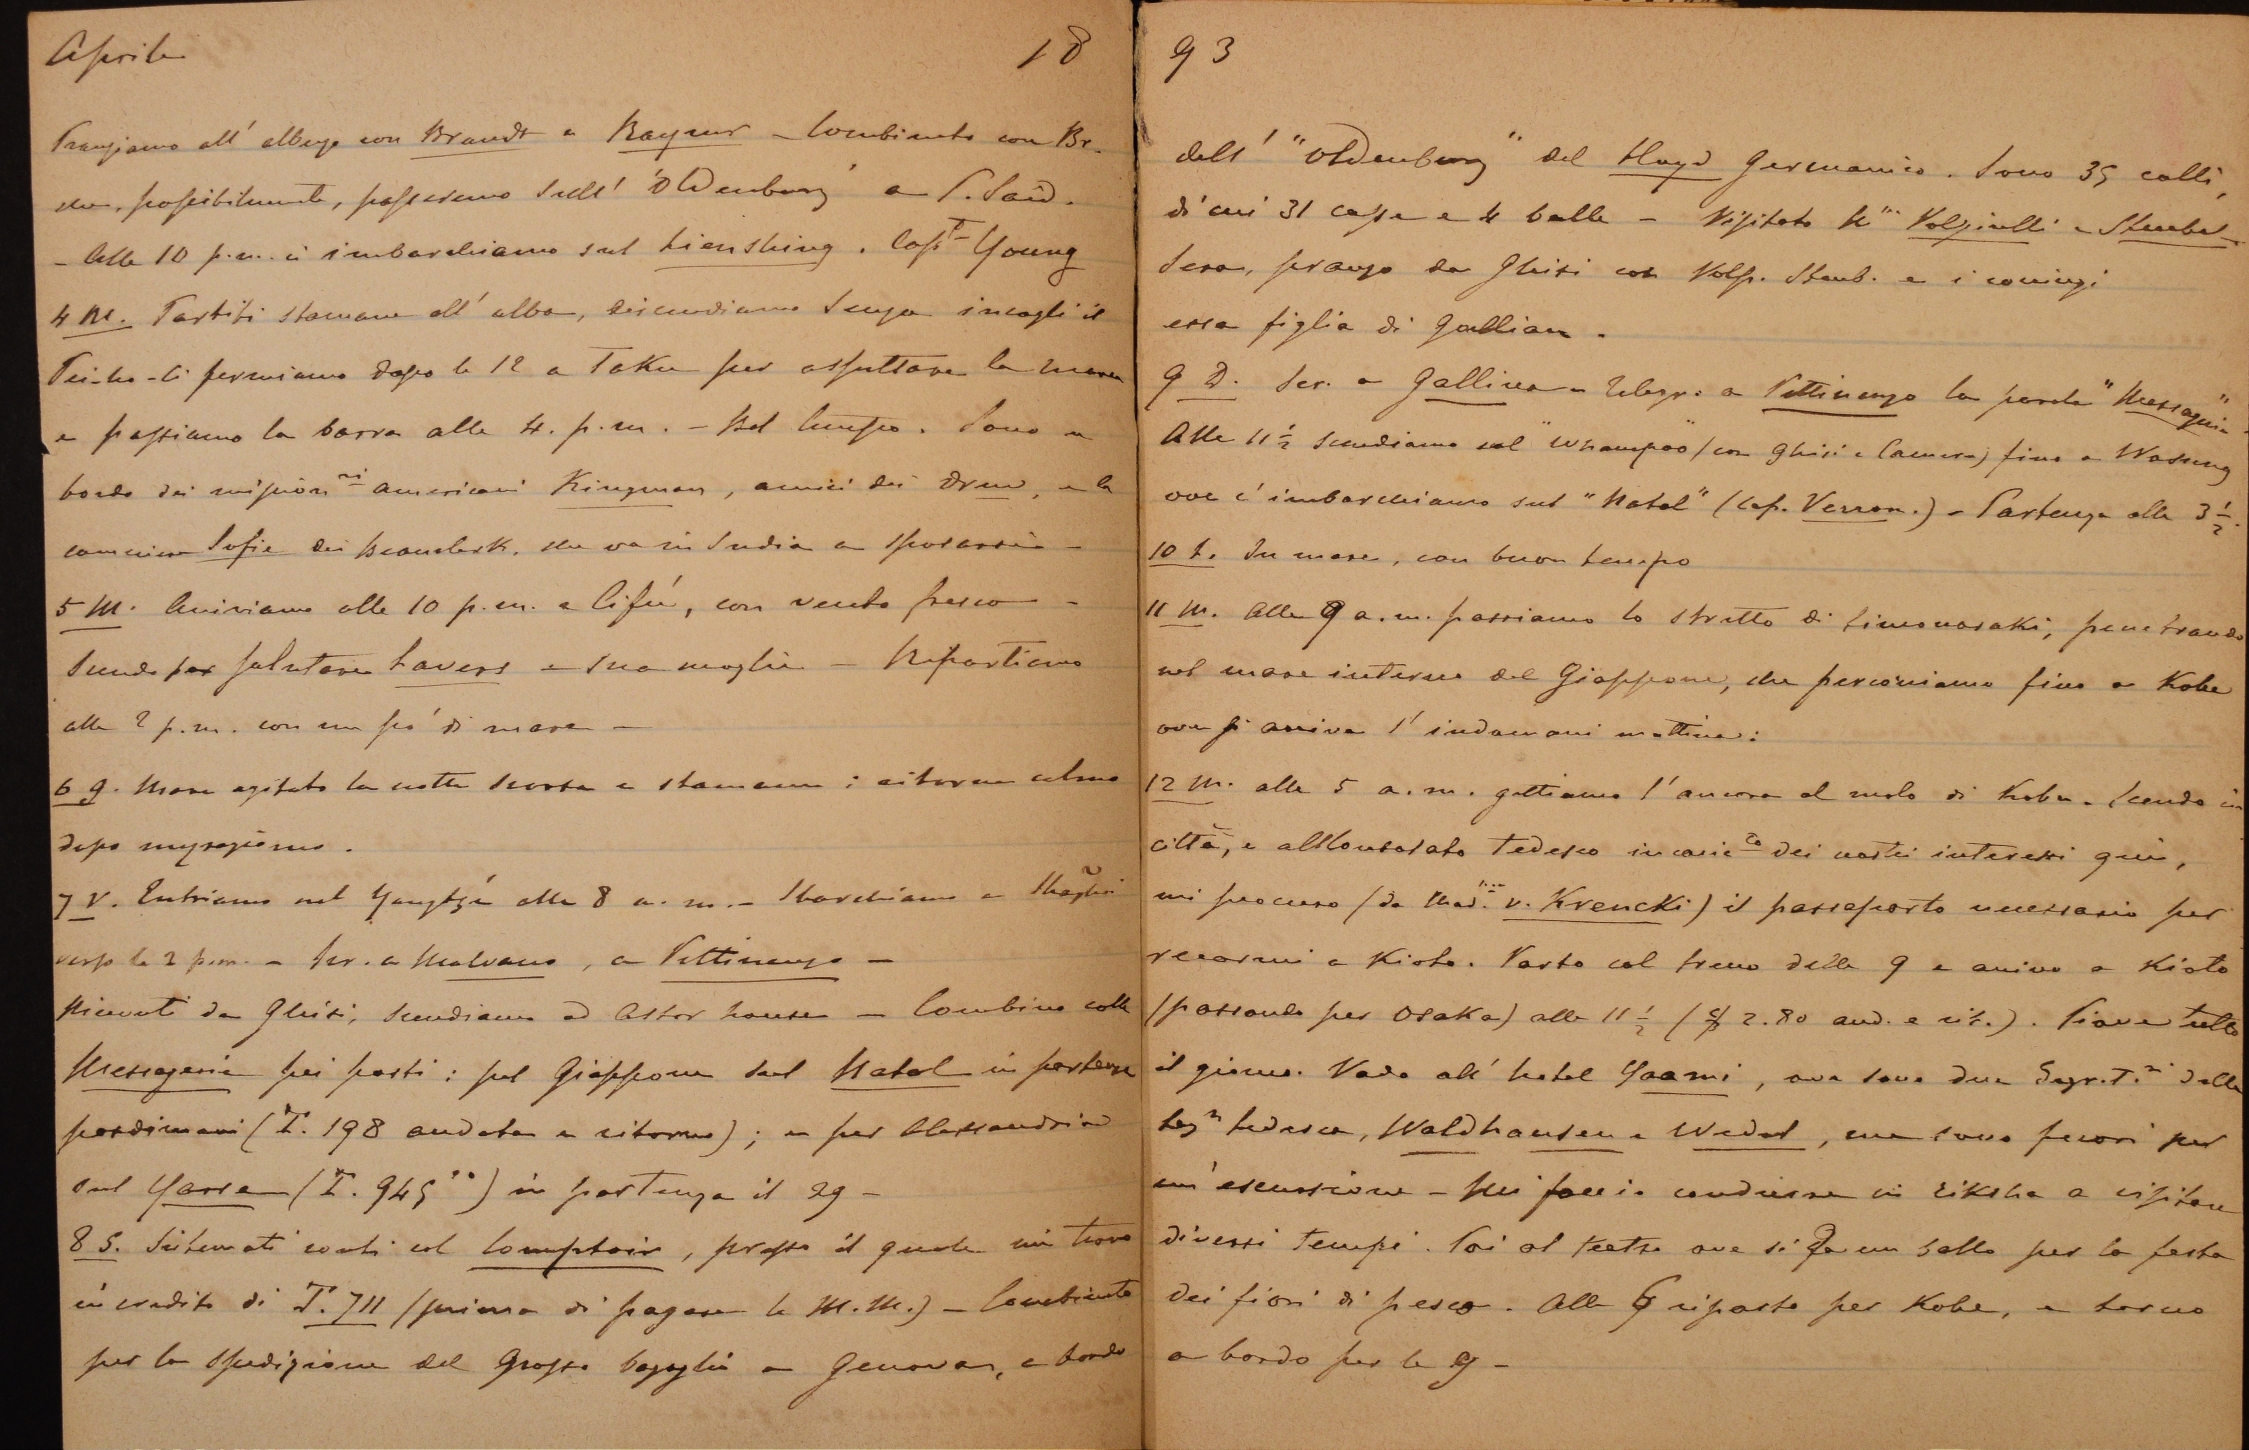 Aprile 18
Pranziamo all'albergo con Brandt e Raymur - Combinato con Br.
che, possibilmente, passeremo sull' "Oldenburg" a P. Said.
- Alle 10 p.m. ci imbarchiamo sul Lienshing. Cap.T Young
4 M. Partiti stamane all'alba, discendiamo senza incagli il
Pei-ho - Ci fermiamo dopo le 12 a Taku per aspettare la marea
e passiamo la barra alle 4. p.m. - Bel tempo. Sono a
bordo dei mission.ri americani Kingman, amici dei Drew, e la
cameriera Sofie dei Beauclerk, che va in India a sposarsi -
5 M. Arriviamo alle 10 p.m. a Cifù, con vento fresco -
Scendo per salutare Lavers e sua moglie - Ripartiamo
alle 2 p.m. con un pò di mare -
6 G. Mare agitato la notte scorsa e stamane; ritorna calmo
dopo mezzogiorno.
7 V. Entriamo nel Yangtzé alle 8 a.m. - Sbarchiamo a
verso le 2 p.m. - Scr. a Malvano, a Pettinengo -
Ricevuti da Ghisi, scendiamo ad Astor house - Combino colle
Messagerie pei posti: pel Giappone sul Natal in partenza
posdimani (T. 198 andata e ritorno); e per Alessandria
sul Yarra (T. 945 ) in partenza il 29 -
8 S. Sistemati conti col Comptoir, presso il quale mi trovo
in credito di T. 711 (prima di pagare le M.M.) - Combinato
per la spedizione del grosso bagaglio a Genova, a bordo
93
dell' "Oldenburg" del Lloyd Germanico. Sono 35 colli,
di cui 31 casse e 4 balle - Visitato Volpicelli e
Sera, pranzo da Ghisi con Volp. e i coniugi
essa figlia di
9 D. Scr. a Gallina - Telegr. a Pettinengo la parola "Messagerie".
Alle 11 1/2 scendiamo sul "Whampoo" (con Ghisi e Camera) fino a Wosung
ove c'imbarchiamo sul "Natal" (Cap. Verron.) - Partenza alle 3 1/2.
10 L. In mare, con buon tempo
11 M. Alle 9 a.m. passiamo lo stretto di Simonosaki, penetrando
nel mare interno del Giappone, che percorriamo fino a Kobe
ove si arriva l'indomani mattina:
12 M. alle 5 a.m. gettiamo l'ancora al molo di Kobe. Scendo in
città, e al Consolato tedesco incaric.to dei nostri interessi quì,
mi procuro (da v. Krencki) il passaporto necessario per
recarmi a Kioto. Parto col treno delle 9 e arrivo a Kioto
(passando per Osaka) alle 11 1/2 ($ 2.80 and. e rit.). Piove tutto
il giorno. Vado all'hotel Yaami, ove sono due Segr. T.ri della
Leg.n tedesca, Waldhausen e Wedel, ma sono fuori per
un'escursione - Mi faccio condurre in riksha a visitare
diversi tempi. Poi al teatro ove si fa un ballo per la festa
dei fiori di pesco. Alle 6 riparto per Kobe, e torno
a bordo per le 9 -